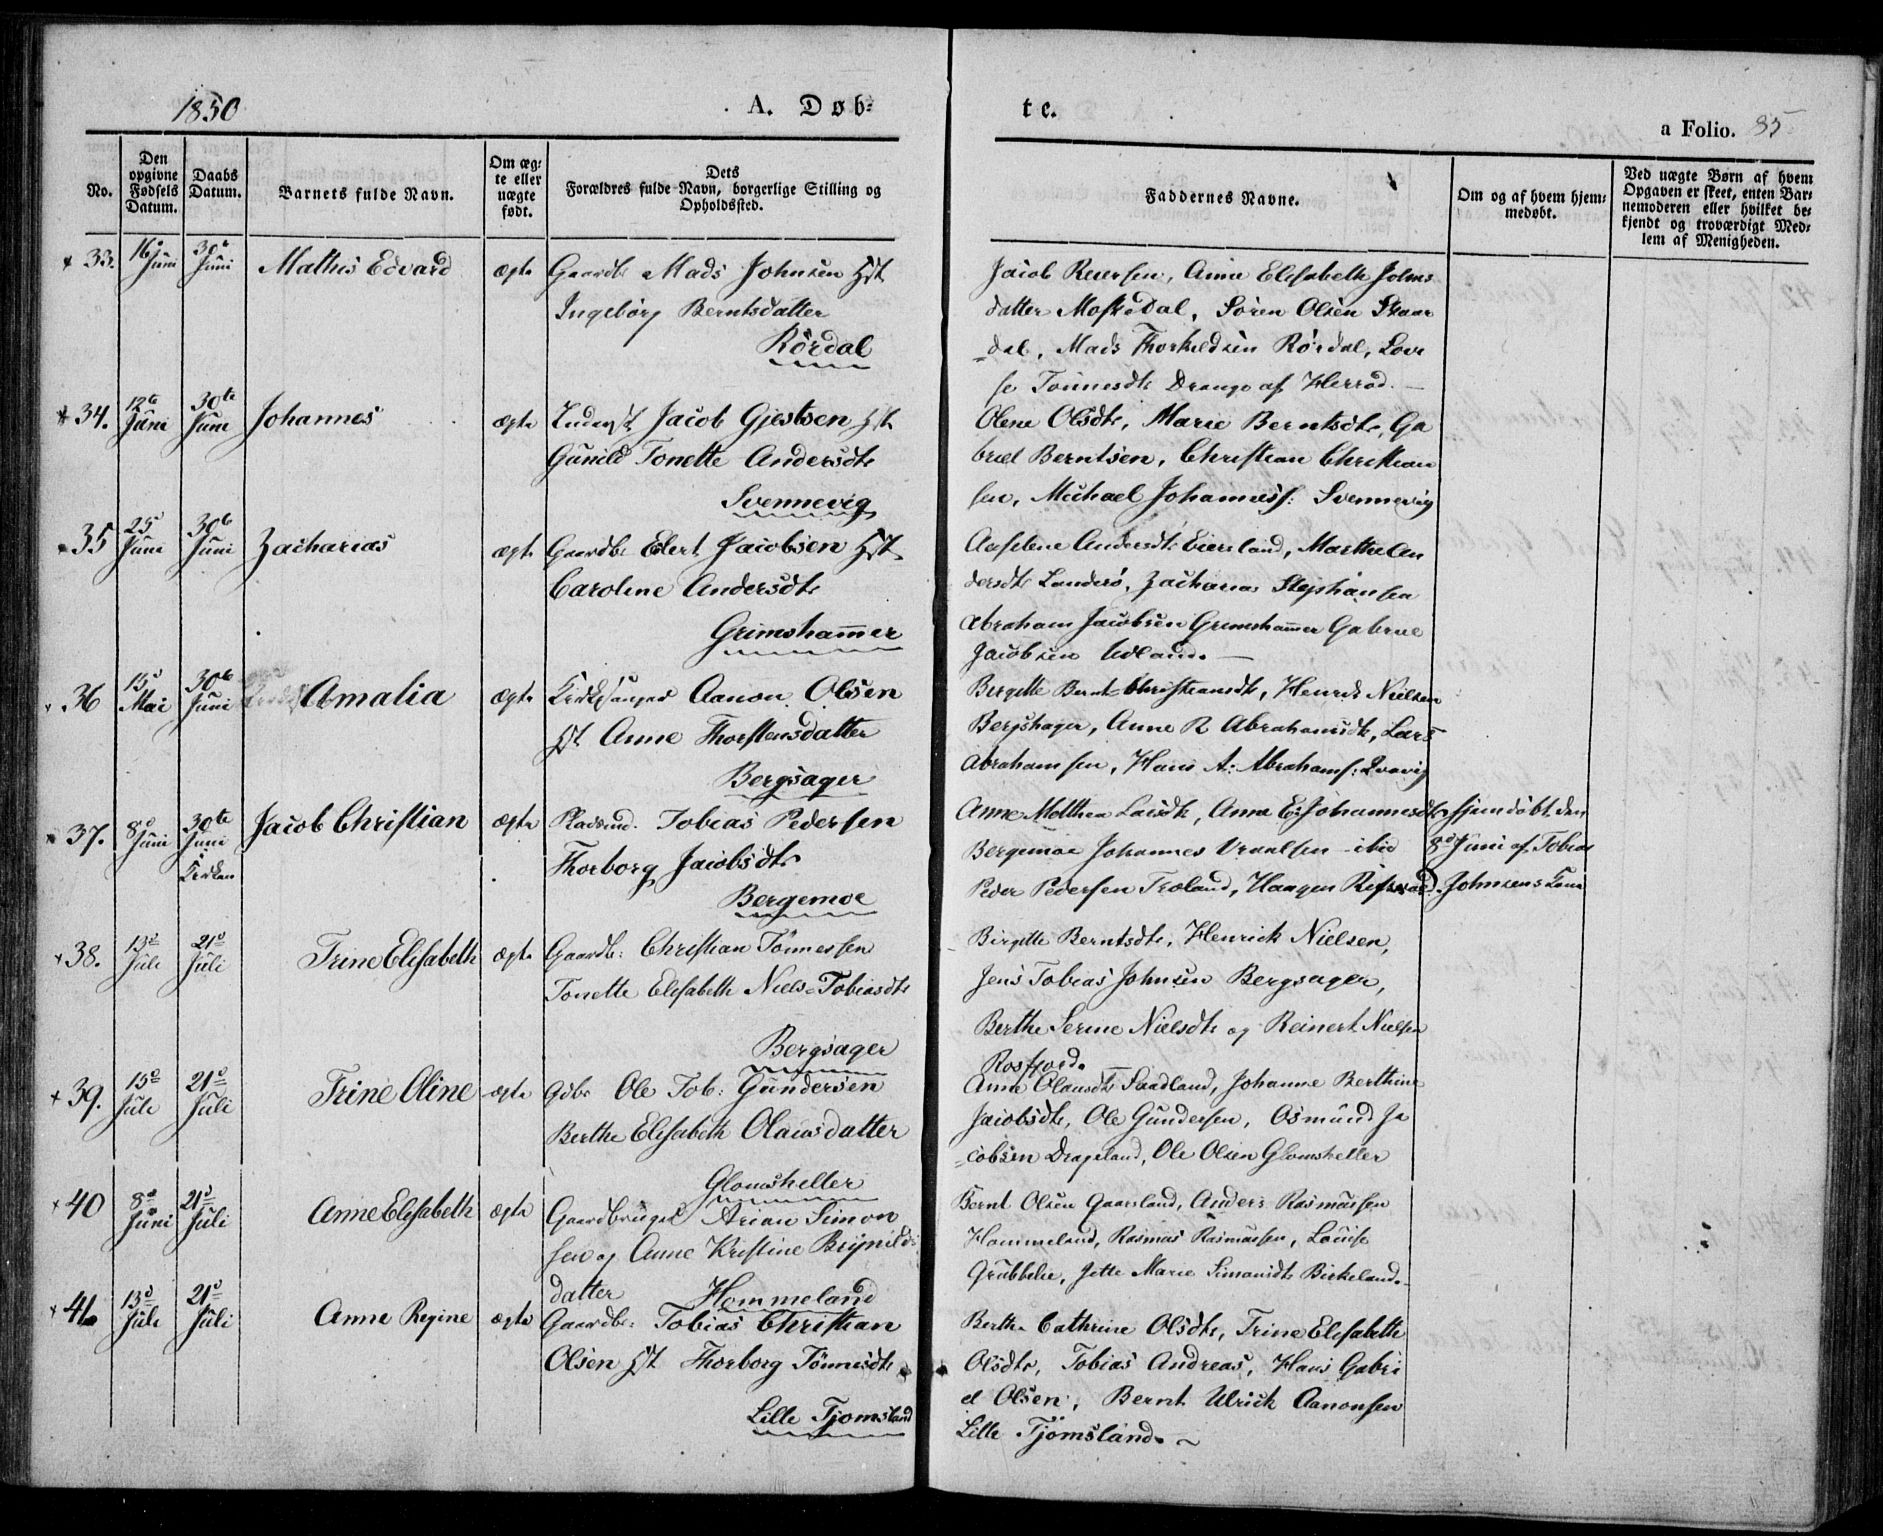 1850
A. Døb-
te.
a Folio. 85
No.
Den opgivne Fødsels Datum.
Daabs Datum.
Barnets fulde Navn.
Om ægte eller uægte født.
Dets Forældres fulde Navn, borgerlige Stilling og Opholdssted.
Faddernes Navne.
Om og af hvem hjemmedøbt.
Ved uægte Børn af hvem Opgaven er skeet, enten Barnemoderen eller hvilket bekjendt og troværdigt Medlem af Menigheden.
33. 16 Juni 30 Juni Mathis Edvard ægte Gaardbr Mads Johnsen Hst
Ingeborg Berntsdatter
Rørdal
Jacob Reiersen, Anne Elisabeth Johns
datter Moskedal, Søren Olsen Skaar
dal, Mads Thorkildsen Rørdal, Lovi
se Tønnesdtr Drange af Herred.
34. 12te Juni 30te Juni Johannes ægte Jacob Gjertsen Hst
Gunild Tonette Andersdtr
Svennevig
Olene Olsdtr, Marie Berntsdtr, Ga
briel Berntsen, Christian Christian
sen, Michael Johanness: Svennevig
35 25d Juni 30te Juni Zacharias ægte Gaardbr Elert Jacobsen Hst
Caroline Andersdtr
Grimshammer
Aaselene Andersdtr Eiersland, Marthe An
dersdtr Landerø, Zacharias Stephansen
Abraham Jacobsen Grimshammer Gabriel
Jacobsen Udland.
36 15d Mai 30te Juni Amalia ægte Kirkesanger Aanon Olsen
Hst Anne Thorstensdatter
Bergsager
Bergitte Bernt Christiansdtr, Henrik Nielsen
Bergshager, Anne R Abrahamsdtr, Lars
Abrahamsen, Hans A: Abrahams:
37. 8d Juni 30te Juni Kirken Jacob Christian ægte Pladsmd. Tobias Pedersen
Thorborg Jacobsdtr
Bergemoe
Anne Malthea Larsdtr, Anne E: Johannesdtr
Bergemoe Johannes Vraalsen ibid
Peder Pedersen Troland, Haagen
Hjemdøbt den
8d Juni af Tobias
Johnsens Kone
38. 13d Juli 21d Juli Trine Elisabeth ægte Gaardbr: Christian Tønnessen
Tonette Elisabeth Niels-Tobiasdtr
Bergsager
Birgitte Berntsdtr, Henrick Nielsen,
Jens Tobias Johnsen Bergsager,
Berthe Serine Nielsdtr og Reinert Nielsen
Rosfjord.
39. 15d Juli 21d Juli Trine Oline ægte Gdbr Ole Tob: Gundersen
Berthe Elisabeth Olausdatter
Glomsheller
Anne Olausdtr Saadland, Johanne Berthine
Jacobsdtr, Ole Gundersen, Osmund Ja
cobsen Drageland, Ole Olsen Glomsheller
40 8d Juni 21d Juli Anne Elisabeth ægte Gaardbruger Arian Simon
sen og Anne Kristine Brynilds
datter Hommeland
Bernt Olsen Gaarsland, Anders Rasmussen
Hommeland, Rasmus Rasmussen, Louise
Grubbelie, Jette Marie Simonsdtr Birkeland.
41. 13d Juli 21d Juli Anne Regine ægte Gaardbr: Tobias Christian
Olsen Hst Thorborg Tønnesdtr
Lille Tjomsland
Berthe Cathrine Olsdtr, Trine Elisabeth
Olsdtr, Tobias Andreas, Hans Gabri
el Olsen, Bernt Ulrick Aanonsen
Lille Tjömsland.